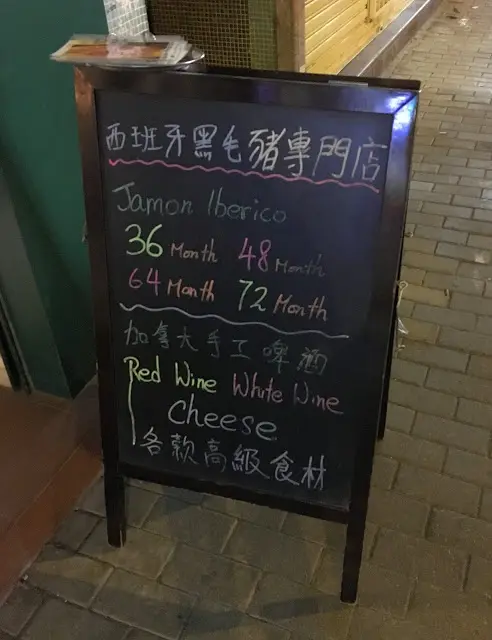 西班牙黑毛豬專門店
Jamon Iberico
36 Month 48 Month
64 Month 72 Month
加拿大手工啤酒
Red Wine White Wine
Cheese
各款高級食材